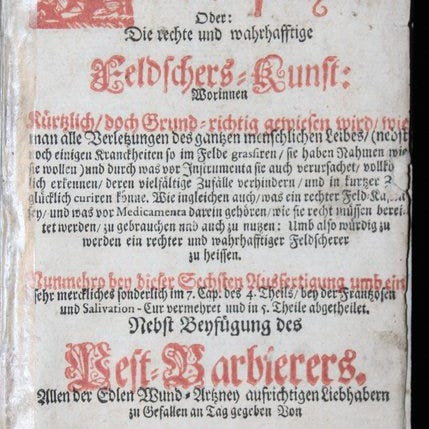 Oder:
Die rechte und wahrhafftige
Feldschers-Kunst:
Worinnen
Kürtzlich/ doch Grund-richtig gewiesen wird/ wie
man alle Verletzungen des gantzen menschlichen Leibes/ (nebst
noch einigen Kranckheiten so im Felde grassiren/ sie haben Nahmen wie
sie wollen) und durch was vor Instrumenta sie auch verursachet/
lich erkennen/ deren vielfältige Zufälle verhindern/ und in kurtzer
glücklich curiren könne. Wie ingleichen auch/ was ein rechter
sey/ und was vor Medicamenta darein gehören/ wie sie recht müssen berei-
tet werden/ zu gebrauchen und auch zu nutzen: Umb also würdig zu
werden ein rechter und wahrhafftiger Feldscherer
zu heissen.
Nunmehro bey dieser Sechsten Ausfertigung umb ein
sehr merckliches sonderlich im 7. Cap. des 4. Theils/ bey der Frantzosen
und Salivation-Cur vermehret und in 5. Theile abgetheilet.
Nebst Beyfügung des
Pest-Barbierers.
Allen der Edlen Wund-Artzney aufrichtigen Liebhabern
zu Gefallen an Tag gegeben Von